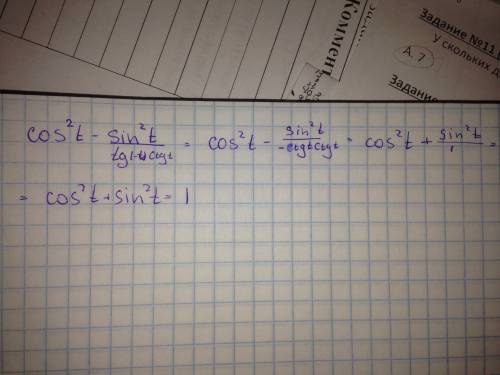 Коммент
Задание №11.
У скольких д
А. 7
Задание
cos²t - sin²t/tg(-t)ctgt = cos²t - sin²t/-ctgtctgt = cos²t + sin²t/1 =
= cos²t + sin²t = 1